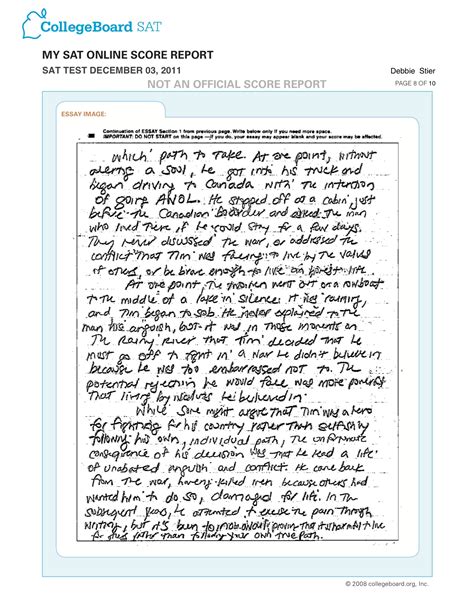 CollegeBoard SAT
MY SAT ONLINE SCORE REPORT
SAT TEST DECEMBER 03, 2011
Debbie Stier
NOT AN OFFICIAL SCORE REPORT
PAGE 8 OF 10
ESSAY IMAGE:
Continuation of ESSAY Section 1 from previous page. Write below only if you need more space.
IMPORTANT: DO NOT START on this page—if you do, your essay may appear blank and your score may be affected.
which path to take. At one point, without
alerting a soul, he got into his truck and
began driving to Canada with the intention
of going AWOL. He stopped off at a cabin just
before the Canadian boarder and asked the man
who lived there if he could stay for a few days.
They never discussed the war, or addressed the
conflict that Tim was facing: to live by the values
of others, or be brave enough to live an honest life.
At one point, the two men went out on a rowboat
to the middle of a lake in silence. It was raining,
and Tim began to sob. He never explained to the
man his anguish, but it was in those moments on
The Rainy River that Tim decided that he
must go off to fight in a war he didn't believe in
because he was too embarrassed not to. The
potential rejection he would face was more powerful
than living by values he believed in.
While some might argue that Tim was a hero
for fighting for his country rather than selfishly
following his own, individual path, the unfortunate
consequence of his decision was that he lead a life
of unabated anguish and conflict. He came back
from the war, having killed men because others had
wanted him to do so, damaged for life. In the
subsequent years, he attempted to excise the pain through
writing, but it's been to proving that it's harmful to live
for others rather than to follow your own inner life.
© 2008 collegeboard.org, Inc.